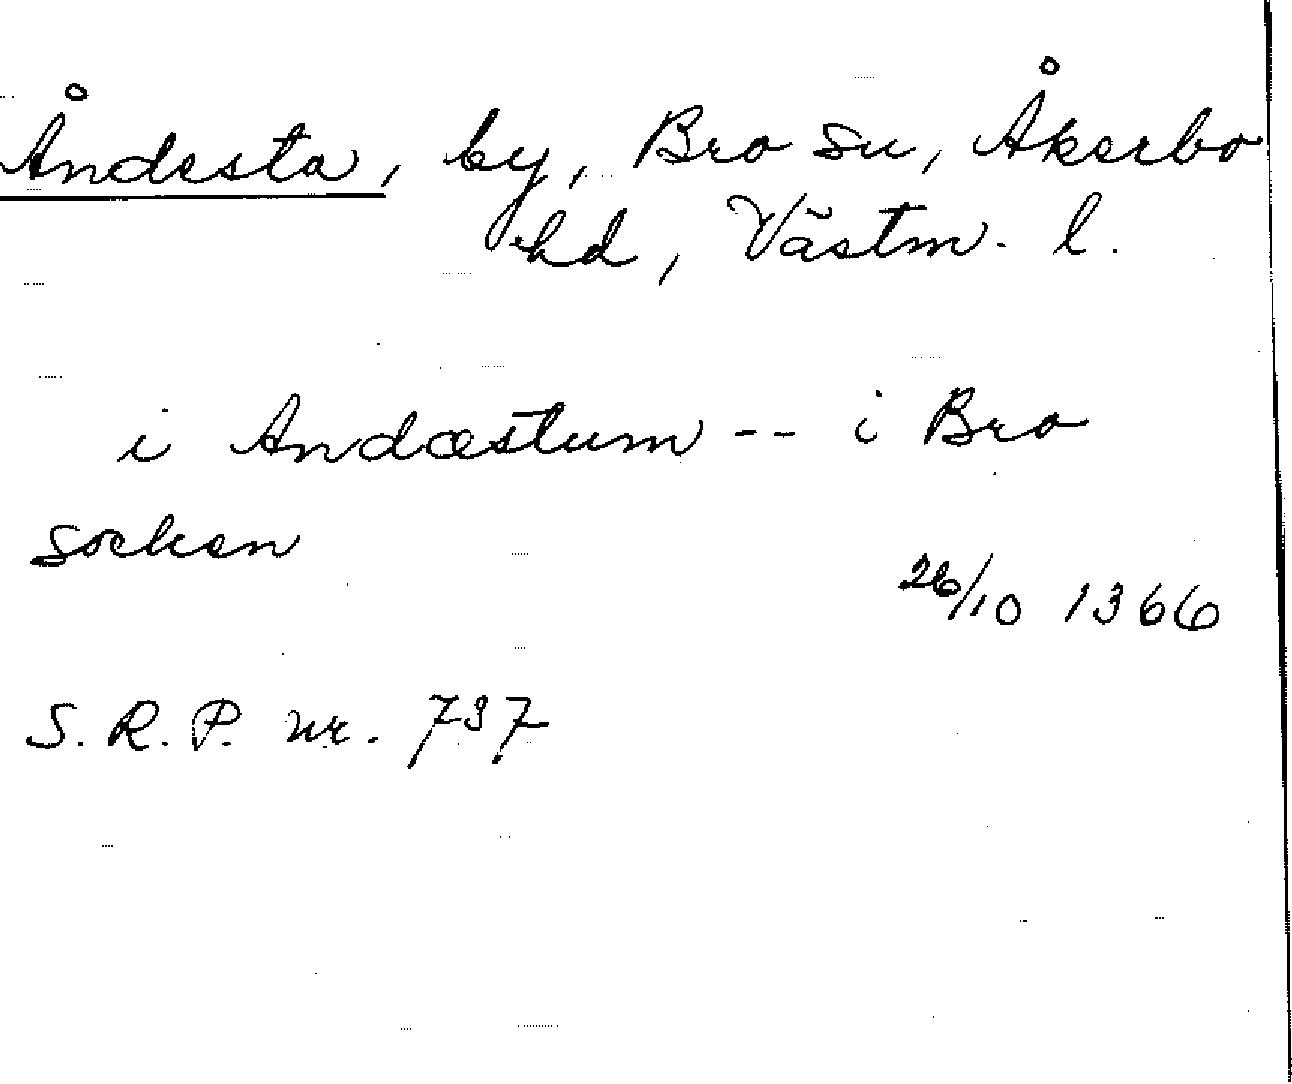 Åndesta, by, Bro sn, Åkerbo
hd, Västm. l.
i Andæstum -- i Bro
socken
26/10 1366
S. R. P. nr. 737